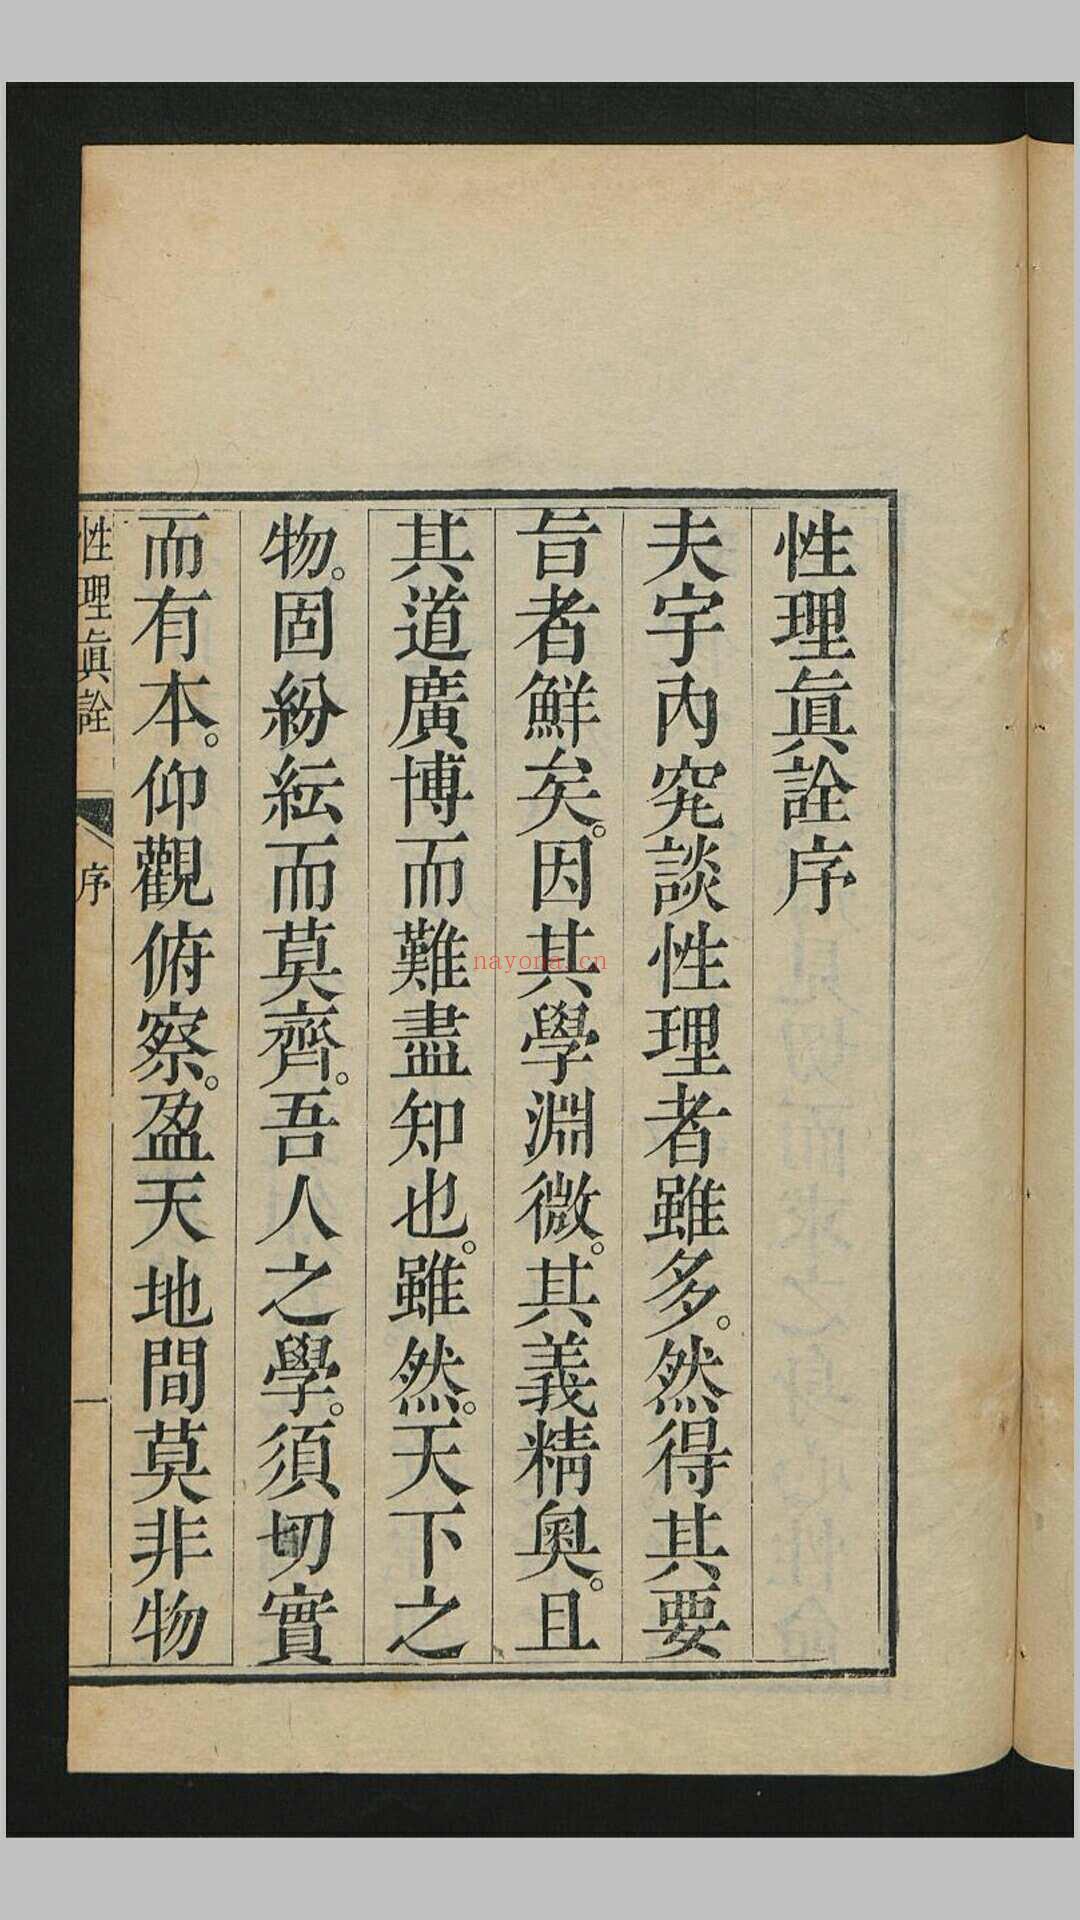 性理眞詮序
夫宇內究談性理者雖多。然得其要
旨者鮮矣。因其學淵微。其義精奧。且
其道廣博而難盡知也。雖然。天下之
物。固紛紜而莫齊。吾人之學。須切實
而有本。仰觀俯察。盈天地間莫非物
性理眞詮 序 一
nayona.cn